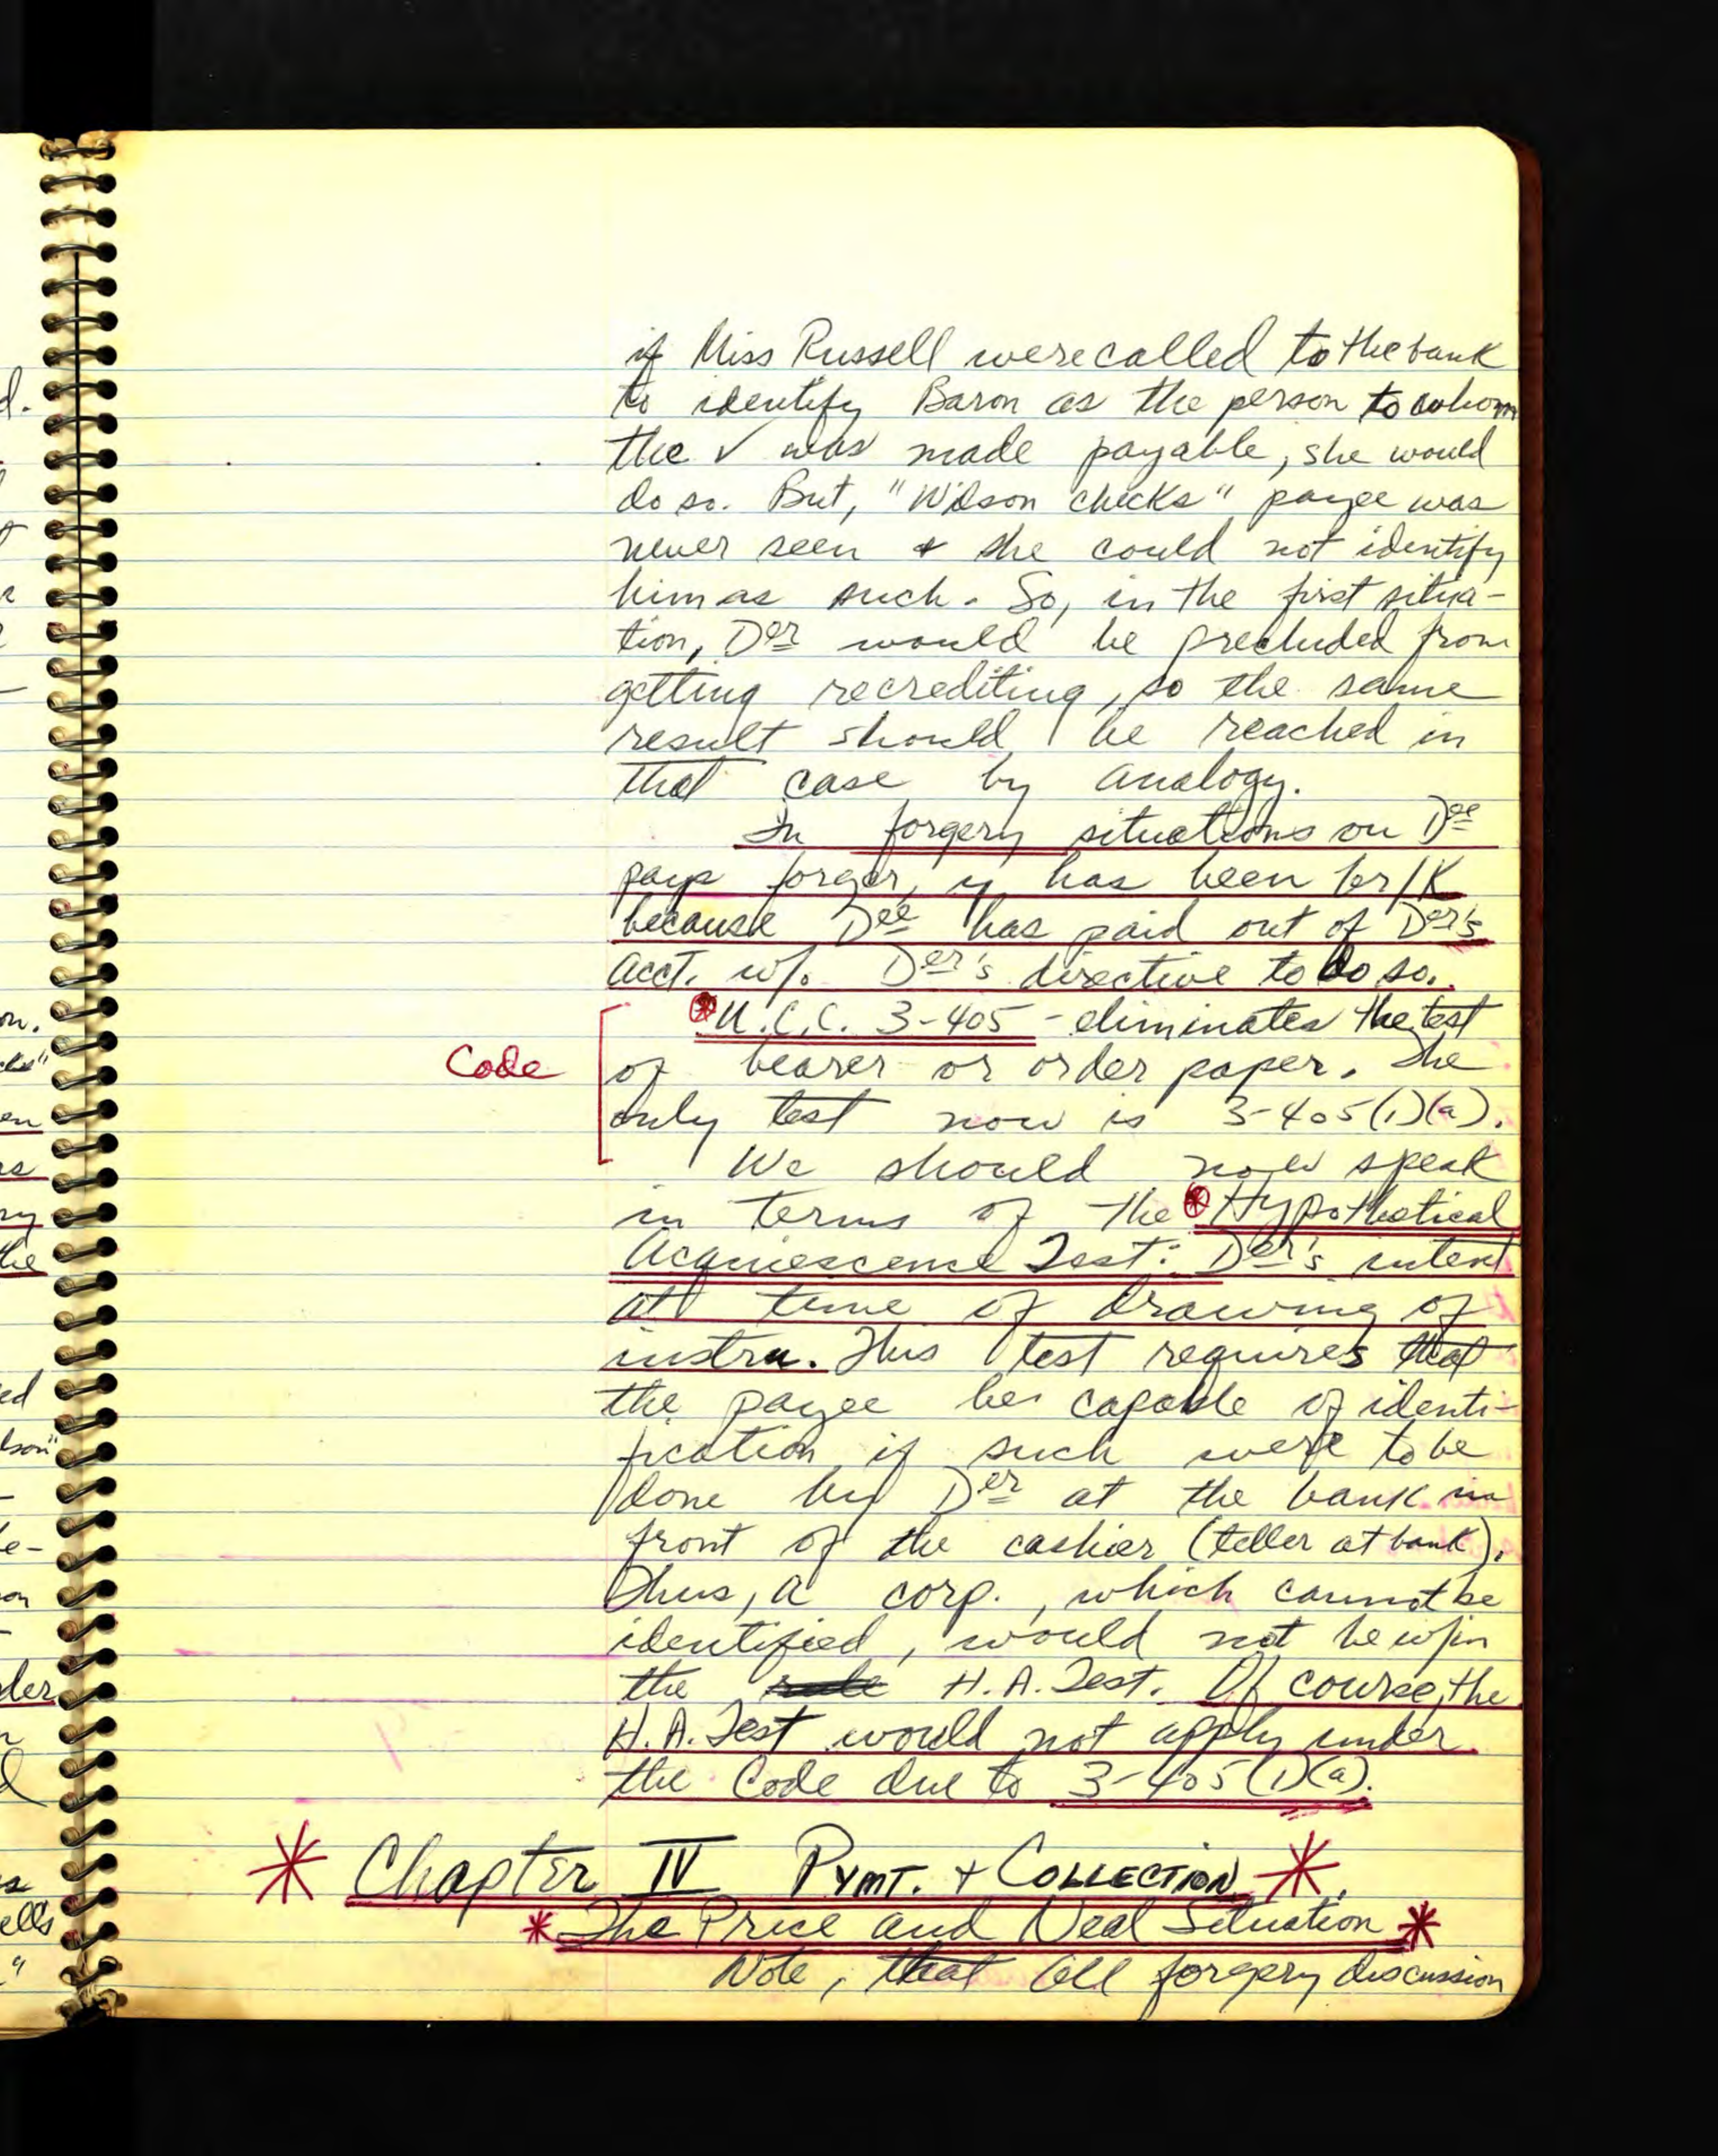 if Miss Russell were called to the bank
to identify Baron as the person to whom
the ✓ was made payable, she would
do so. But, "Wilson checks" payee was
never seen & she could not identify
him as such. So, in the first situa-
tion, Der would be precluded from
getting recrediting, so the same
result should be reached in
that case by analogy.
In forgery situations on Dee
pays forger, y has been br/K
because Dee has paid out of Der's
acct. w/o Der's directive to do so.
U.C.C. 3-405 - eliminates the test
Code
of bearer or order paper. The
only test now is 3-405(1)(a).
We should now speak
in terms of the Hypothetical
Acquiescence Test: Der's intent
at time of drawing of
instru. This test requires that
the payee be capable of identi-
fication if such were to be
done by Der at the bank in
front of the cashier (teller at bank).
Thus, a corp., which cannot be
identified, would not be w/in
the rule H.A. Test. Of course, the
H.A. Test would not apply under
the Code due to 3-405(1)(a).
* Chapter IV PYMT. + COLLECTION *
* The Price and Neal Situation *
Note, that all forgery discussion